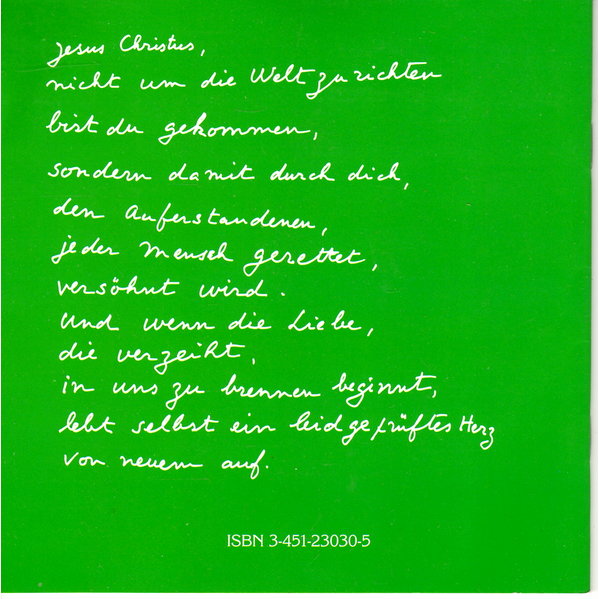 Jesus Christus,
nicht um die Welt zu richten
bist du gekommen,
sondern damit durch dich,
den Auferstandenen,
jeder Mensch gerettet,
versöhnt wird.
Und wenn die Liebe,
die verzeiht,
in uns zu brennen beginnt,
lebt selbst ein leidgeprüftes Herz
von neuem auf.
ISBN 3-451-23030-5